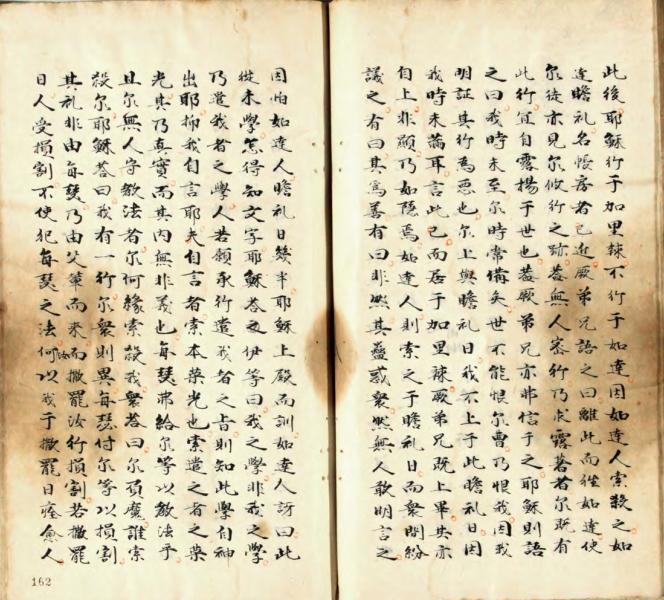 此後耶穌行于加里辣不行于如達因如達人索殺之如
達瞻礼名帳房者已近厥弟兄語之曰離此而徃如達使
尔徒亦見尔攸行之跡盖無人密行乃求露著若尔既有
此行宜自露揚于世也盖厥弟兄亦弗信于之耶穌則語
之曰我時未至尔時常備矣世不能恨尔曹乃恨我因我
明証其行為惡也尔上與瞻礼日我不上于此瞻礼日因
我時未滿耳言此已而居于加里辣厥弟兄既上畢其亦
自上非顯乃如隱焉如達人則索之于瞻礼日而衆間紛
議之有曰其為善有曰非然其蠱惑衆然無人敢明言之
因怕如達人瞻礼日幾半耶穌上殿而訓如達人訝曰此
從未學怎得知文字耶穌荅之伊等曰我之學非我之學
乃遣我者之學人若願承行遣我者之旨則知此學自神
出耶抑我自言耶夫自言者索本榮光也索遣之者之榮
光其乃真實而其内無非義也每瑟弗給尔等以教法乎
且尔無人守教法者尔何緣索殺我衆荅曰尔負魔誰索
殺尔耶穌荅曰我有一行尔衆則異每瑟付尔等以損割
其礼非由每瑟乃由父輩而來而撒罷汝行損割若撒罷
日人受損割不使犯每瑟之法何汝以我于撒罷日痊愈人
162